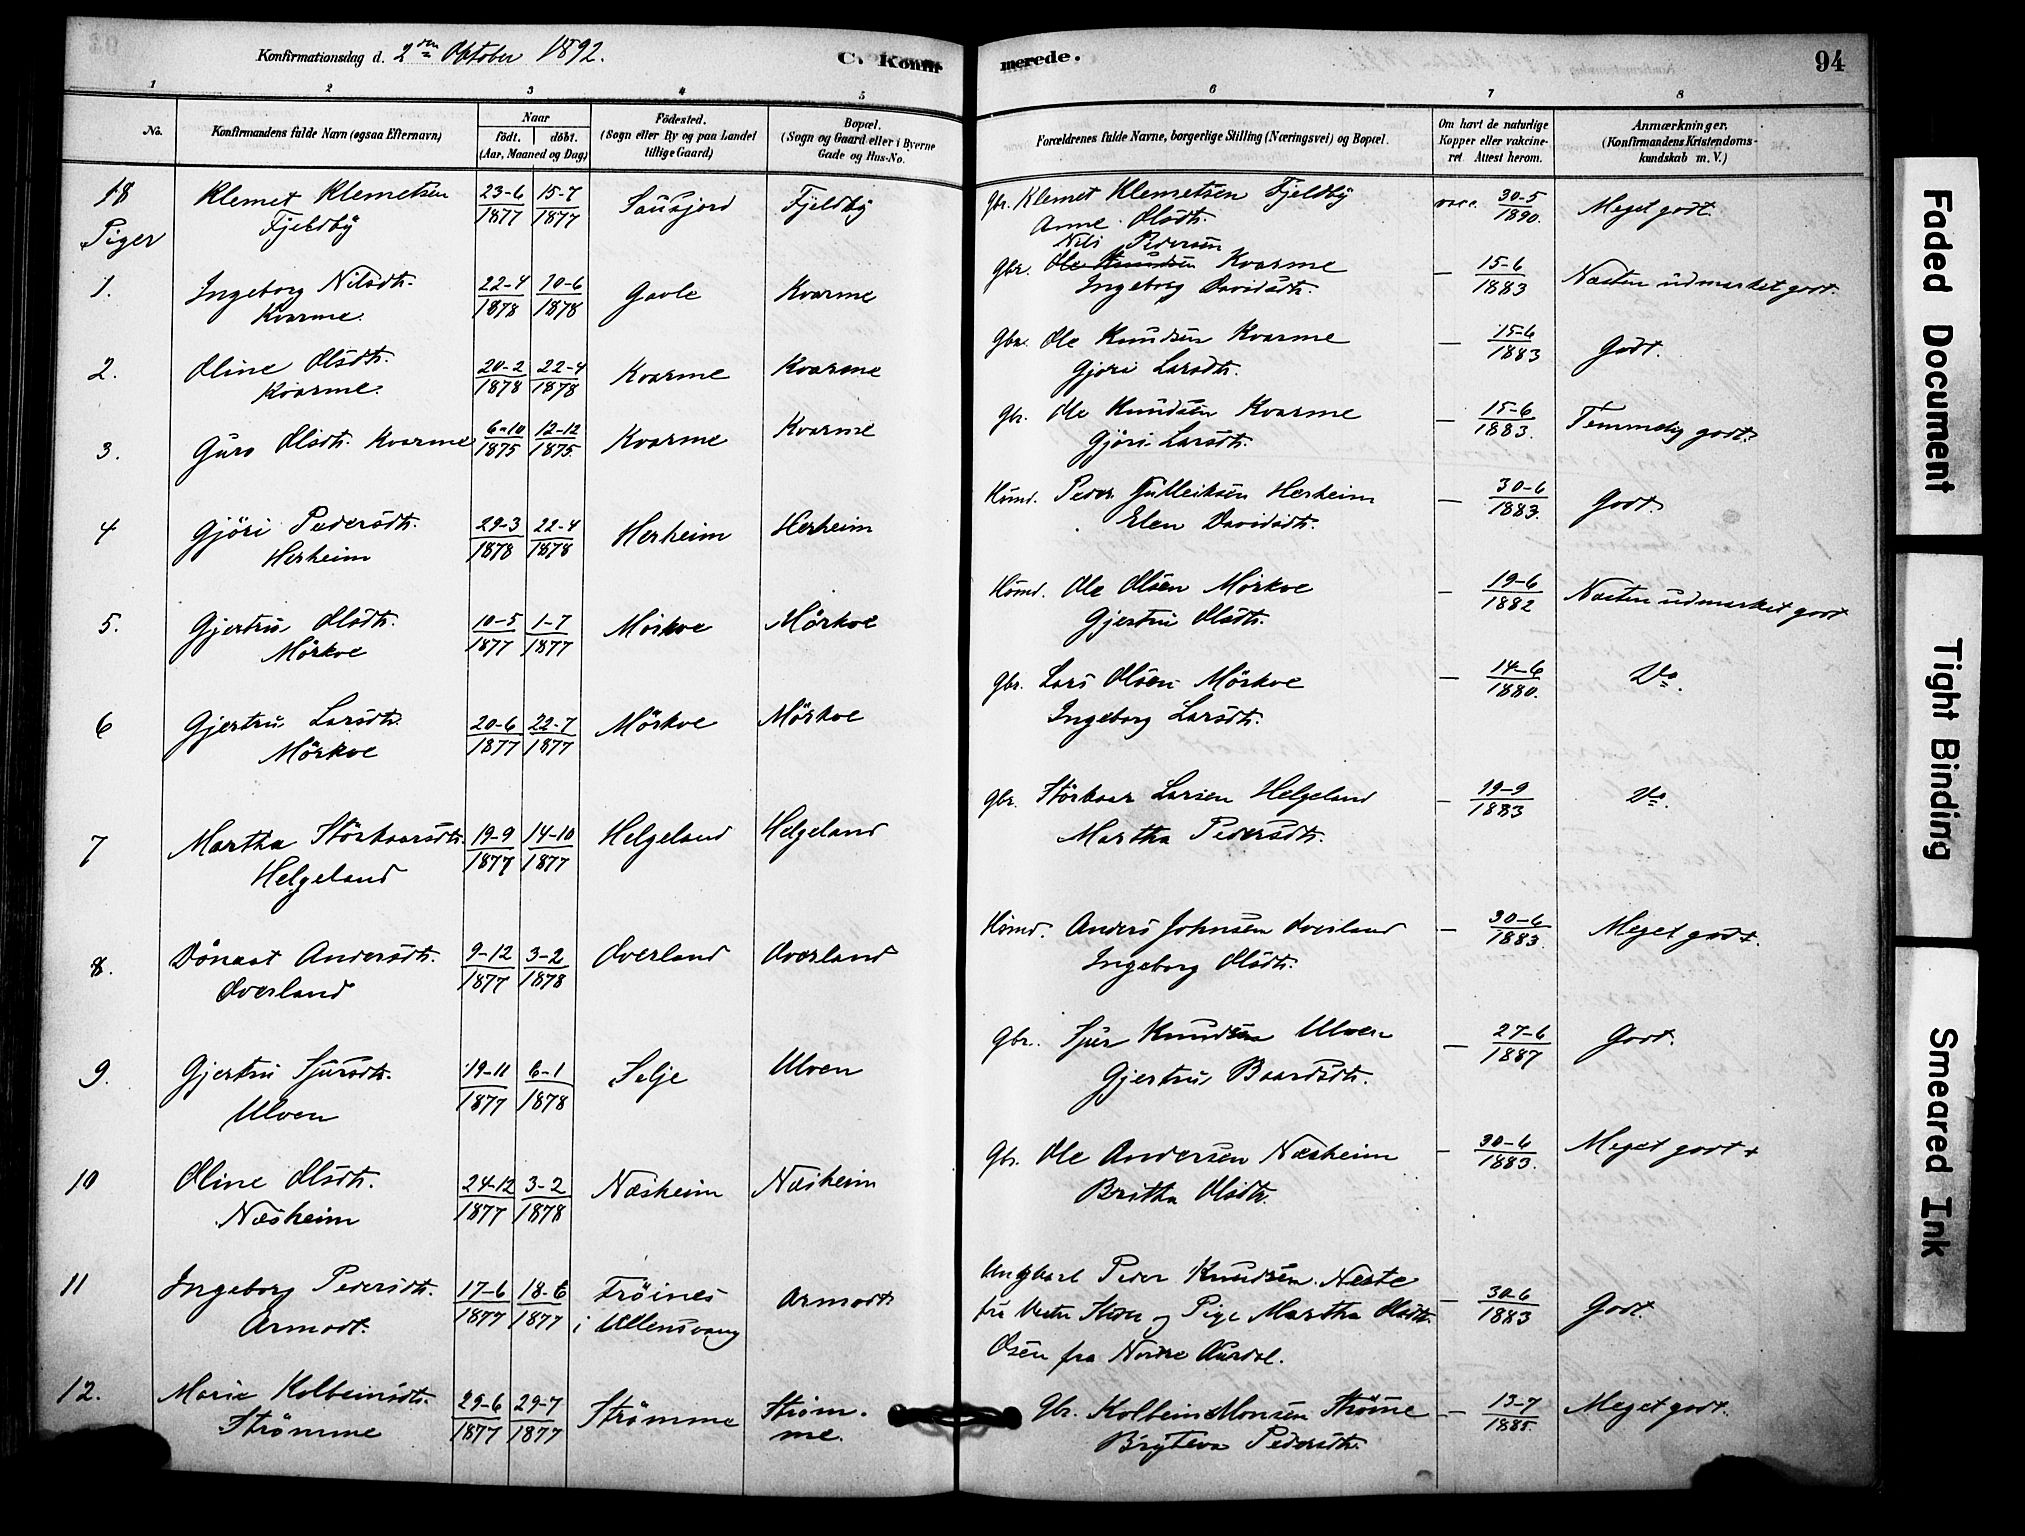 Konfirmationsdag d. 2den Oktober 1892. C. Konfirmerede. 94
1 2 3 4 5 6 7 8
No. Konfirmandens fulde Navn (ogsaa Efternavn) Naar født. døbt. (Aar, Maaned og Dag) Fødested. (Sogn eller By og paa Landet tillige Gaard) Bopæl. (Sogn og Gaard eller i Byerne Gade og Hus-No. Forældrenes fulde Navne, borgerlige Stilling (Næringsvei) og Bopæl. Om havt de naturlige Kopper eller vakcineret. Attest herom. Anmærkninger. (Konfirmandens Kristendomskundskab m. V.)
18 Klemet Klemetsen 23-6 1877 15-7 1877 Sausjord Fjeldby Gbr. Klemet Klemetsen Fjeldby vacc. 30-5 1890. Meget godt
Fjeldby Anne Olsdtr.
Piger
Nils Pedersen
1. Ingeborg Nilsdtr. 22-4 1878 10-6 1878 Gavle Kvarme Gbr. Ole Knudsen Kvarme — 15-6 1883 Næsten udmærket godt.
Kvarme. Ingeborg Davidsdtr.
2. Oline Olsdtr. 20-2 1878 22-4 1878 Kvarme Kvarme Gbr. Ole Knudsen Kvarme — 15-6 1883 Godt.
Kvarme. Gjöri Larsdtr.
3. Guro Olsdtr. Kvarme 6-10 1875 12-12 1875. Kvarme Kvarme Gbr. Ole Knudsen Kvarme — 15-6 1883. Temmelig godt.
Gjöri Larsdtr.
4 Gjöri Pedersdtr. 29-3 1878 22-4 1878 Herheim Herheim Húmd. Peder Gulleiksen Herheim — 30-6 1883. Godt
Herheim Elen Davidsdtr.
5. Gjertru Olsdtr. 10-5 1877 1-7 1877 Mörkve Mörkve Húmd. Ole Olsen Mörkve — 19-6 1882 Næsten udmærket godt
Mörkve Gjertru Olsdtr.
6 Gjertru Larsdtr. 20-6 1877 22-7 1877 Mörkve Mörkve Gbr. Lars Olsen Mörkve — 14-6 1880. Do.
Mörkve Ingeborg Larsdtr.
7 Martha Störkaarsdtr. 19-9 1877 14-10 1877 Helgeland Helgeland Gbr. Störkaar Larsen Helgeland — 19-9 1883 Do.
Helgeland Martha Pedersdtr.
8. Dönaat Andersdtr. 9-12 1877 3-2 1878 Overland Overland Húmd. Anders Johnsen Overland — 30-6 1883. Meget godt.
Overland Ingeborg Olsdtr.
9. Gjertru Sjursdtr. 19-11 1877 6-1 1878 Selje Ulven Gbr. Sjur Knudsen Ulven — 27-6 1887 Godt.
Ulven Gjertru Baardsdtr.
10 Oline Olsdtr. 24-12 1877 3-2 1878 Næsheim Næsheim Gbr. Ole Andersen Næsheim — 30-6 1883. Meget godt +
Næsheim Britha Olsdtr.
11 Ingeborg Pedersdtr. 17-6 1877 18-6 1877 Fröines Armodt Ungkarl Peder Knudsen Neste — 30-6 1883 Godt.
Armodt. i Ullensvang fra og Pige Martha Olsdtr.
Osen fra Nordre Aurdal.
12. Marie Kolbeinsdtr. 29-6 1877 29-7 1877 Strömme Ström- Gbr. Kolbein Monsen Ströme — 13-7 1885. Meget godt.
Strömme me. Bryteva Pedersdtr.
Faded Document
Tight Binding
Smeared Ink